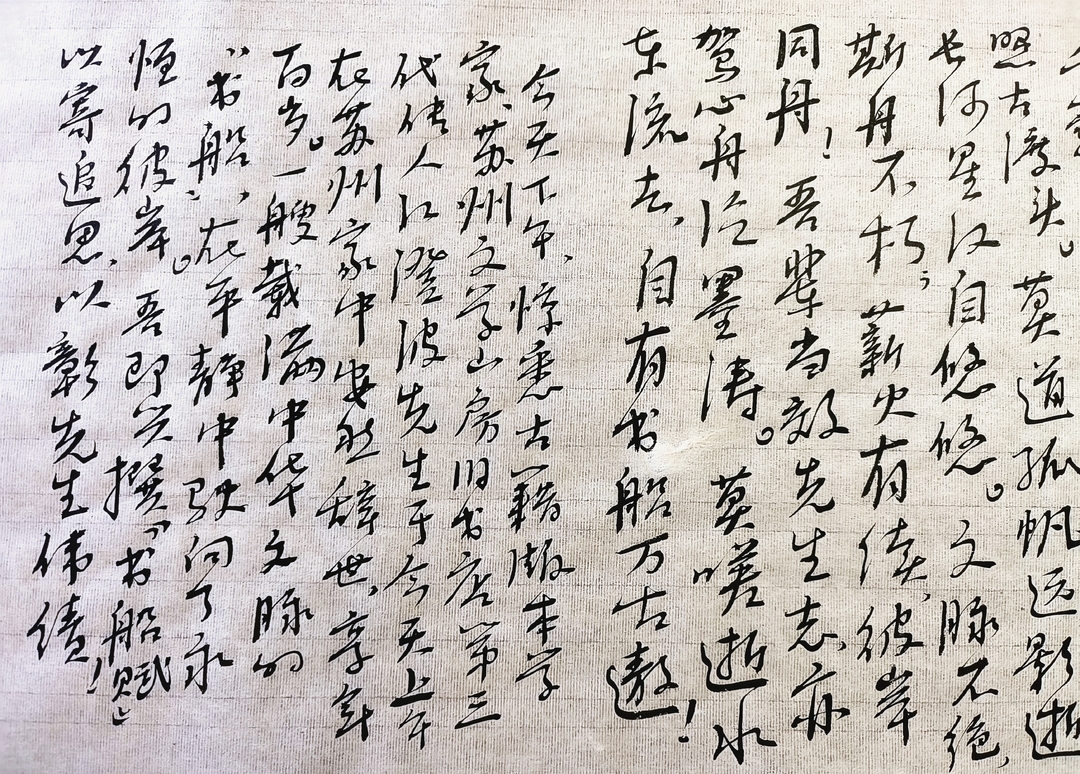 照古渡头。莫道孤帆远影逝
长河星汉自悠悠。文脉不绝，
斯舟不朽，薪火有续，彼岸
同舟！吾辈当效先生志亦
驾心舟泛墨涛。莫嗟逝水
东流去，自有书船万古遨！
今天下午，惊悉古籍版本学
家、苏州文学山房旧书店第三
代传人江澄波先生于今天上午
在苏州家中安然辞世，享年
百岁。一艘载满中华文脉的
“书船”，在平静中驶向了永
恒的彼岸。吾即兴撰「书船赋」
以寄追思，以彰先生伟绩！